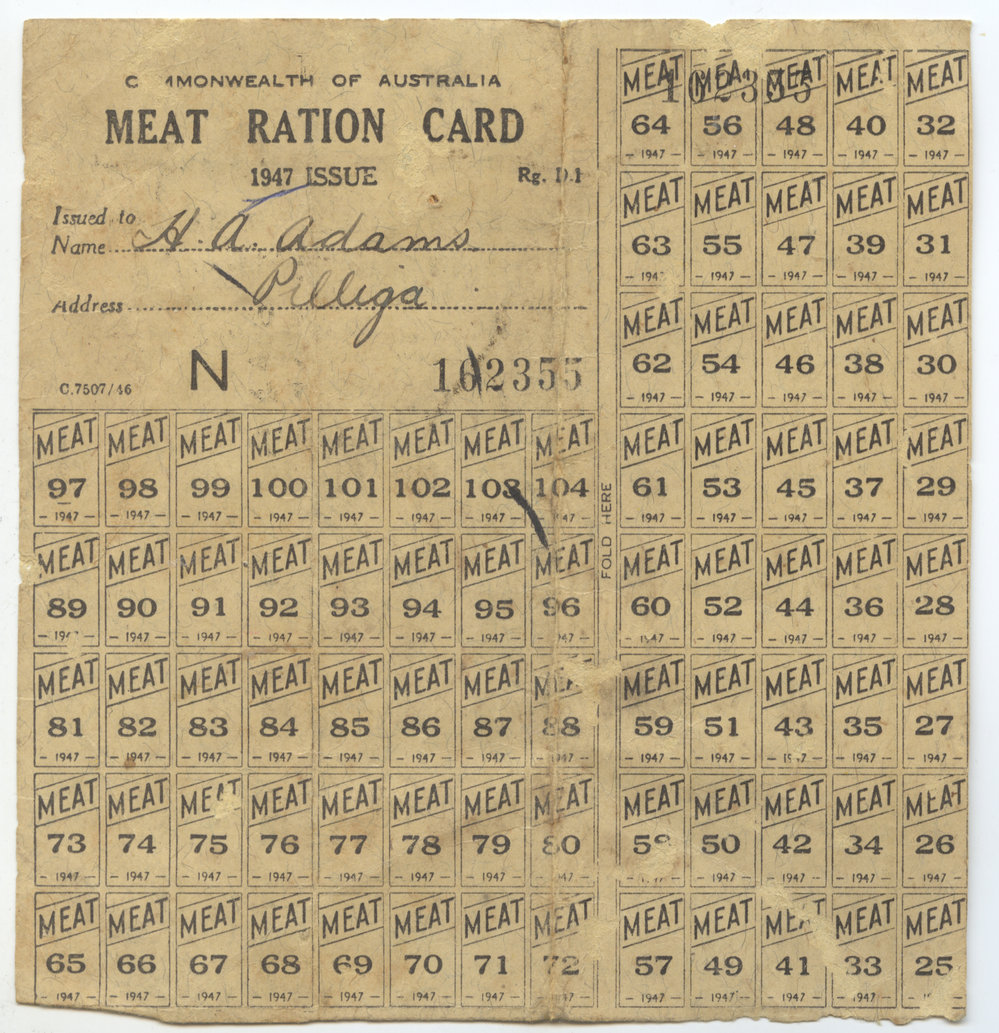 COMMONWEALTH OF AUSTRALIA
MEAT RATION CARD
1947 ISSUE Rg. D.1
Issued to
Name H. A. Adams
Address Pilliga
C.7507/46 N 102355
102355
MEAT MEAT MEAT MEAT MEAT
64 56 48 40 32
– 1947 – – 1947 – – 1947 – – 1947 – – 1947 –
MEAT MEAT MEAT MEAT MEAT
63 55 47 39 31
– 1947 – – 1947 – – 1947 – – 1947 – – 1947 –
MEAT MEAT MEAT MEAT MEAT
62 54 46 38 30
– 1947 – – 1947 – – 1947 – – 1947 – – 1947 –
FOLD HERE
MEAT MEAT MEAT MEAT MEAT MEAT MEAT MEAT MEAT MEAT MEAT MEAT MEAT
97 98 99 100 101 102 103 104 61 53 45 37 29
– 1947 – – 1947 – – 1947 – – 1947 – – 1947 – – 1947 – – 1947 – – 1947 – – 1947 – – 1947 – – 1947 – – 1947 – – 1947 –
MEAT MEAT MEAT MEAT MEAT MEAT MEAT MEAT MEAT MEAT MEAT MEAT MEAT
89 90 91 92 93 94 95 96 60 52 44 36 28
– 1947 – – 1947 – – 1947 – – 1947 – – 1947 – – 1947 – – 1947 – – 1947 – – 1947 – – 1947 – – 1947 – – 1947 – – 1947 –
MEAT MEAT MEAT MEAT MEAT MEAT MEAT MEAT MEAT MEAT MEAT MEAT MEAT
81 82 83 84 85 86 87 88 59 51 43 35 27
– 1947 – – 1947 – – 1947 – – 1947 – – 1947 – – 1947 – – 1947 – – 1947 – – 1947 – – 1947 – – 1947 – – 1947 – – 1947 –
MEAT MEAT MEAT MEAT MEAT MEAT MEAT MEAT MEAT MEAT MEAT MEAT MEAT
73 74 75 76 77 78 79 80 58 50 42 34 26
– 1947 – – 1947 – – 1947 – – 1947 – – 1947 – – 1947 – – 1947 – – 1947 – – 1947 – – 1947 – – 1947 – – 1947 –
MEAT MEAT MEAT MEAT MEAT MEAT MEAT MEAT MEAT MEAT MEAT MEAT MEAT
65 66 67 68 69 70 71 72 57 49 41 33 25
– 1947 – – 1947 – – 1947 – – 1947 – – 1947 – – 1947 – – 1947 – – 1947 – – 1947 – – 1947 – – 1947 – – 1947 –